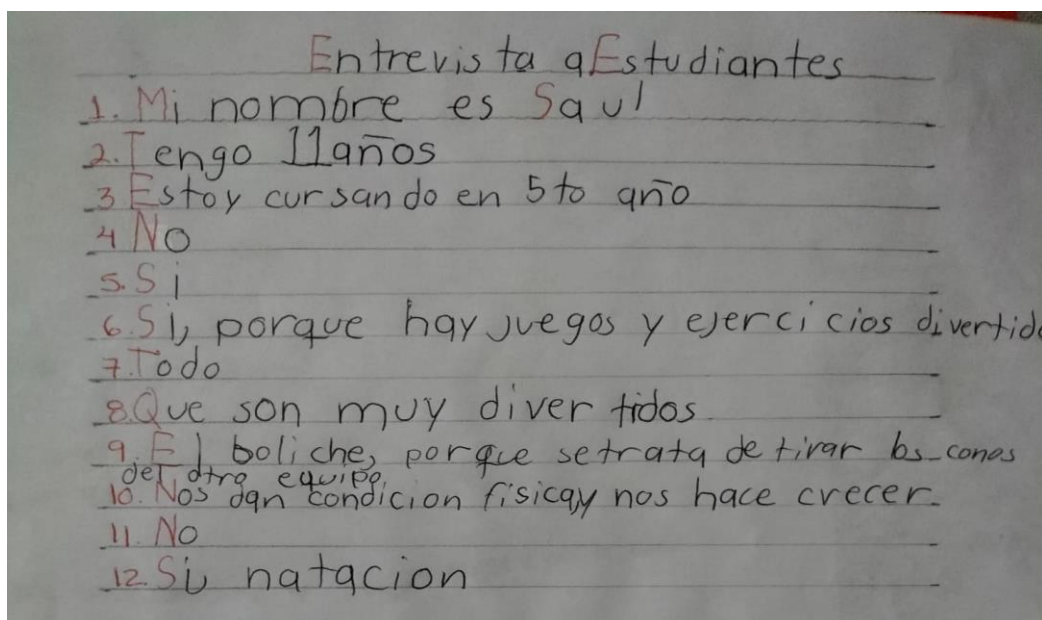 Entrevista a Estudiantes
1. Mi nombre es Saul
2. Tengo 11 años
3 Estoy cursando en 5to año
4 No
5. Si
6. Si, porque hay juegos y ejercicios divertido
7. Todo
8. Que son muy divertidos
9. El boliche, porque se trata de tirar los conos
del otro equipo.
10. Nos dan condicion fisica, y nos hace crecer.
11. No
12. Si, natacion